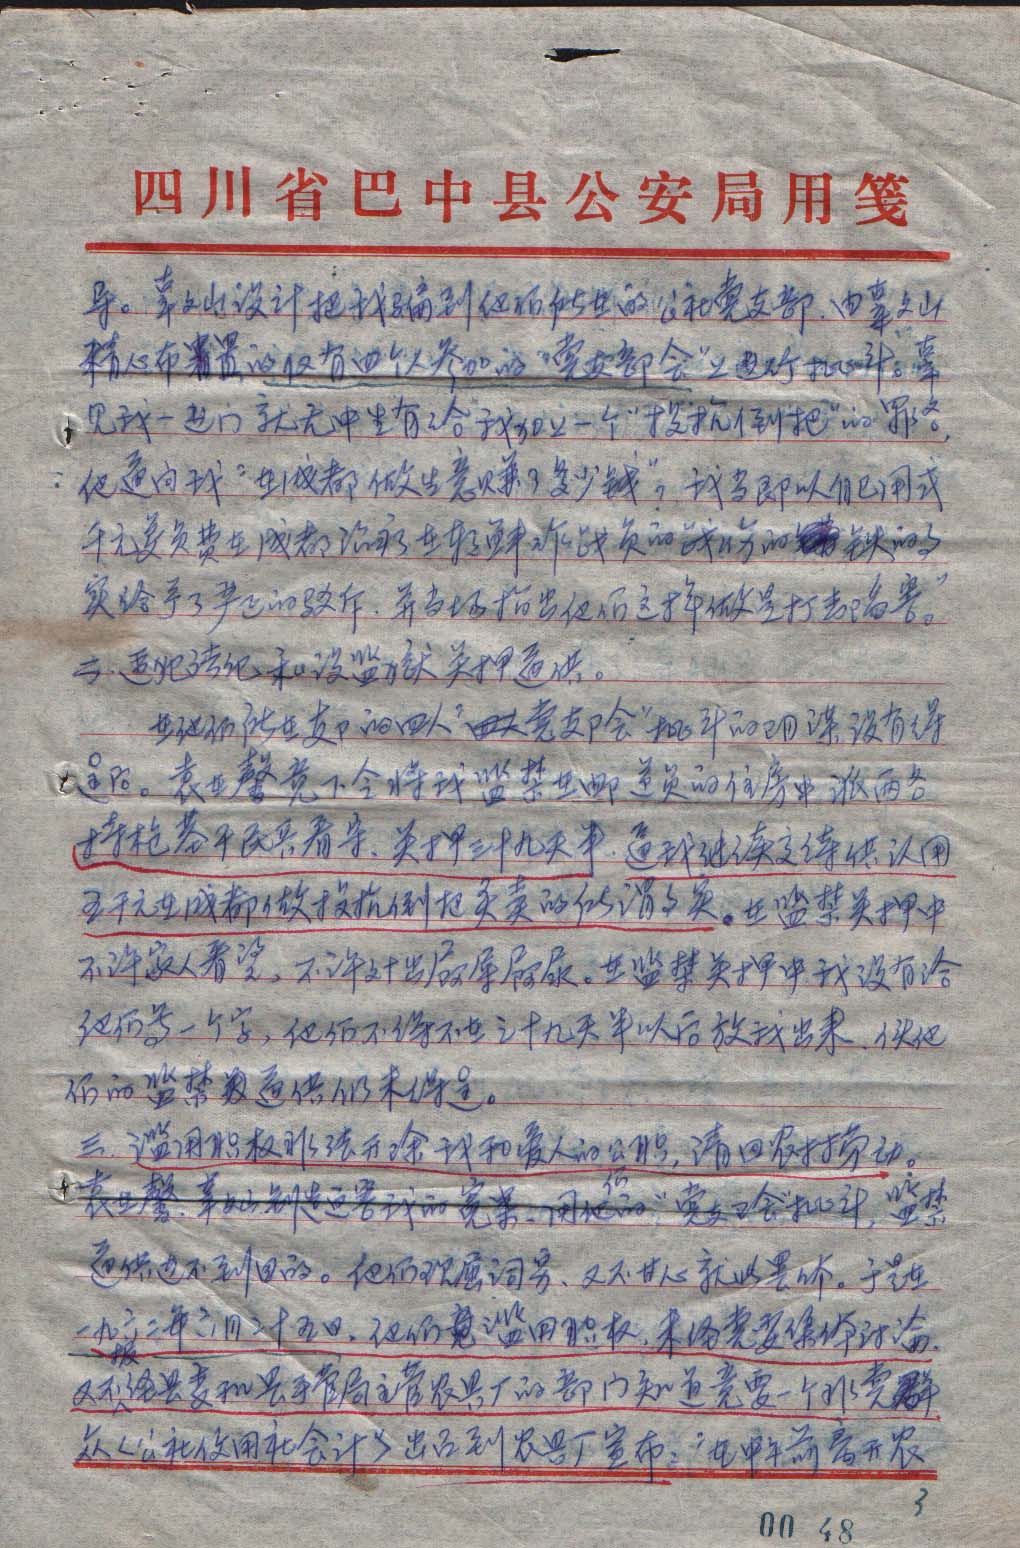 四川省巴中县公安局用笺
导。辜文山设计把我骗到他们所在的公社党支部，由辜文山
精心布置的仅有四个人参加的“党支部会”上进行批斗。辜
见我一进门就无中生有给我加上一个“投机倒把”的罪名，
他逼问我“在成都做生意赚了多少钱”，我当即以自己用
千元差员费在成都治疗在朝鲜作战负的战伤的铁的事
实给予了严正的驳斥，并当场指出他们这样做是打击陷害。”
二、违犯法纪，私设监狱关押逼供。
在他们所在支部的四人“党支部会”批斗的阴谋没有得
逞后。袁在馨竟下令将我监禁在邮递员的住房中派两名
持枪基干民兵看守、关押三十九天半，逼我继续交待供认用
五千元在成都做投机倒把买卖的所谓事实。在监禁关押中
不许家人看望，不许外出屙屎屙尿。在监禁关押中我没有给
他们写一个字，他们不得不在三十九天半以后放我出来，使他
们的监禁逼供仍未得逞。
三、滥用职权非法开除我和爱人的公职，清回农村劳动。
袁在馨、辜文山制造迫害我的冤案，用他们的“党支部会”批斗，监禁
逼供达不到目的。他们理屈词穷、又不甘心就此罢休。于是在
一九六二年六月二十五日，他们竟滥用职权，未经党委集体讨论，
又不报经县委和县手管局主管农具厂的部门知道竟要一个非党群
众（公社信用社会计）出面到农具厂宣布：“在中午前离开农
3
00 48